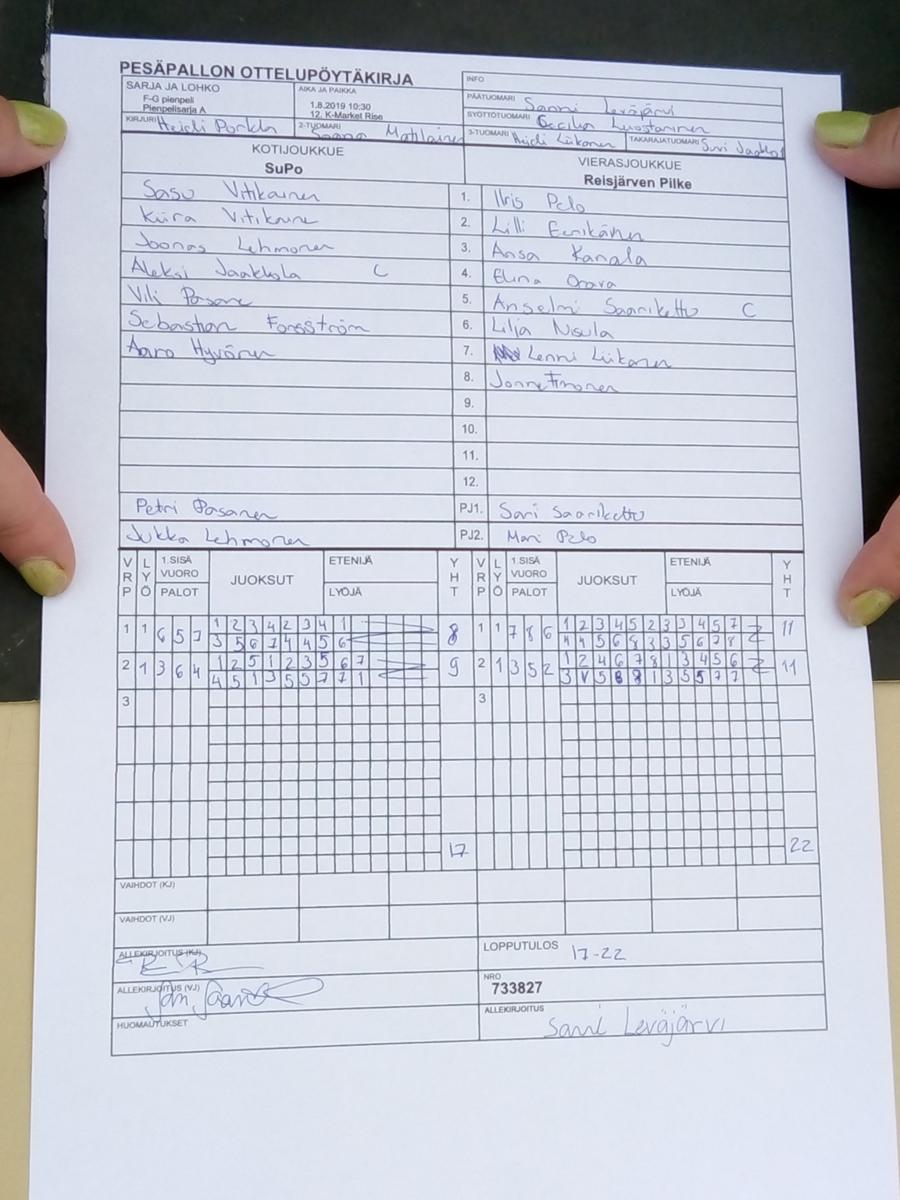 PESÄPALLON OTTELUPÖYTÄKIRJA
INFO
SARJA JA LOHKO
F-G pienpeli
Pienpelisarja A
AIKA JA PAIKKA
1.8.2019 10:30
12. K-Market Rise
PÄÄTUOMARI Sanni Leväjärvi
SYÖTTÖTUOMARI Cecilia Luostarinen
KIRJURI Heidi Porkka
2-TUOMARI Saana Matilainen
3-TUOMARI Heidi Liikanen
TAKARAJATUOMARI Suvi Jaakkol
KOTIJOUKKUE
SuPo
VIERASJOUKKUE
Reisjärven Pilke
Sasu Vitikainen 1. Iiris Pelo
Kiira Vitikaine 2. Lilli Eerikäinen
Joonas Lehmonen 3. Ansa Kanala
Aleksi Jaakkola C 4. Elina Orava
Vili Pasane 5. Anselmi Saariketto C
Sebastian Forsström 6. Lilja Nisula
Aaro Hyvönen 7. Lenni Liikanen
8. Jonne Timonen
9.
10.
11.
12.
Petri Pasanen PJ1. Sari Saariketto
Jukka Lehmonen PJ2. Mari Pelo
VRP LYÖ 1.SISÄ VUORO PALOT JUOKSUT ETENIJÄ LYÖJÄ YHT VRP LYÖ 1.SISÄ VUORO PALOT JUOKSUT ETENIJÄ LYÖJÄ YHT
1 1 6 5 7 1 2 3 4 2 3 4 1 8 1 1 7 8 6 1 2 3 4 5 2 3 3 4 5 7 11
3 5 6 7 4 4 5 6 4 4 5 6 8 3 3 5 6 7 8
2 1 3 6 4 1 2 5 1 2 3 5 6 7 9 2 1 3 5 2 1 2 4 6 7 8 1 3 4 5 6 11
4 5 1 3 5 5 7 7 1 3 5 8 8 1 3 5 5 7 7
3 3
17 22
VAIHDOT (KJ)
VAIHDOT (VJ)
ALLEKIRJOITUS (KJ)
LOPPUTULOS 17-22
ALLEKIRJOITUS (VJ)
NRO
733827
HUOMAUTUKSET
ALLEKIRJOITUS
Sanni Leväjärvi